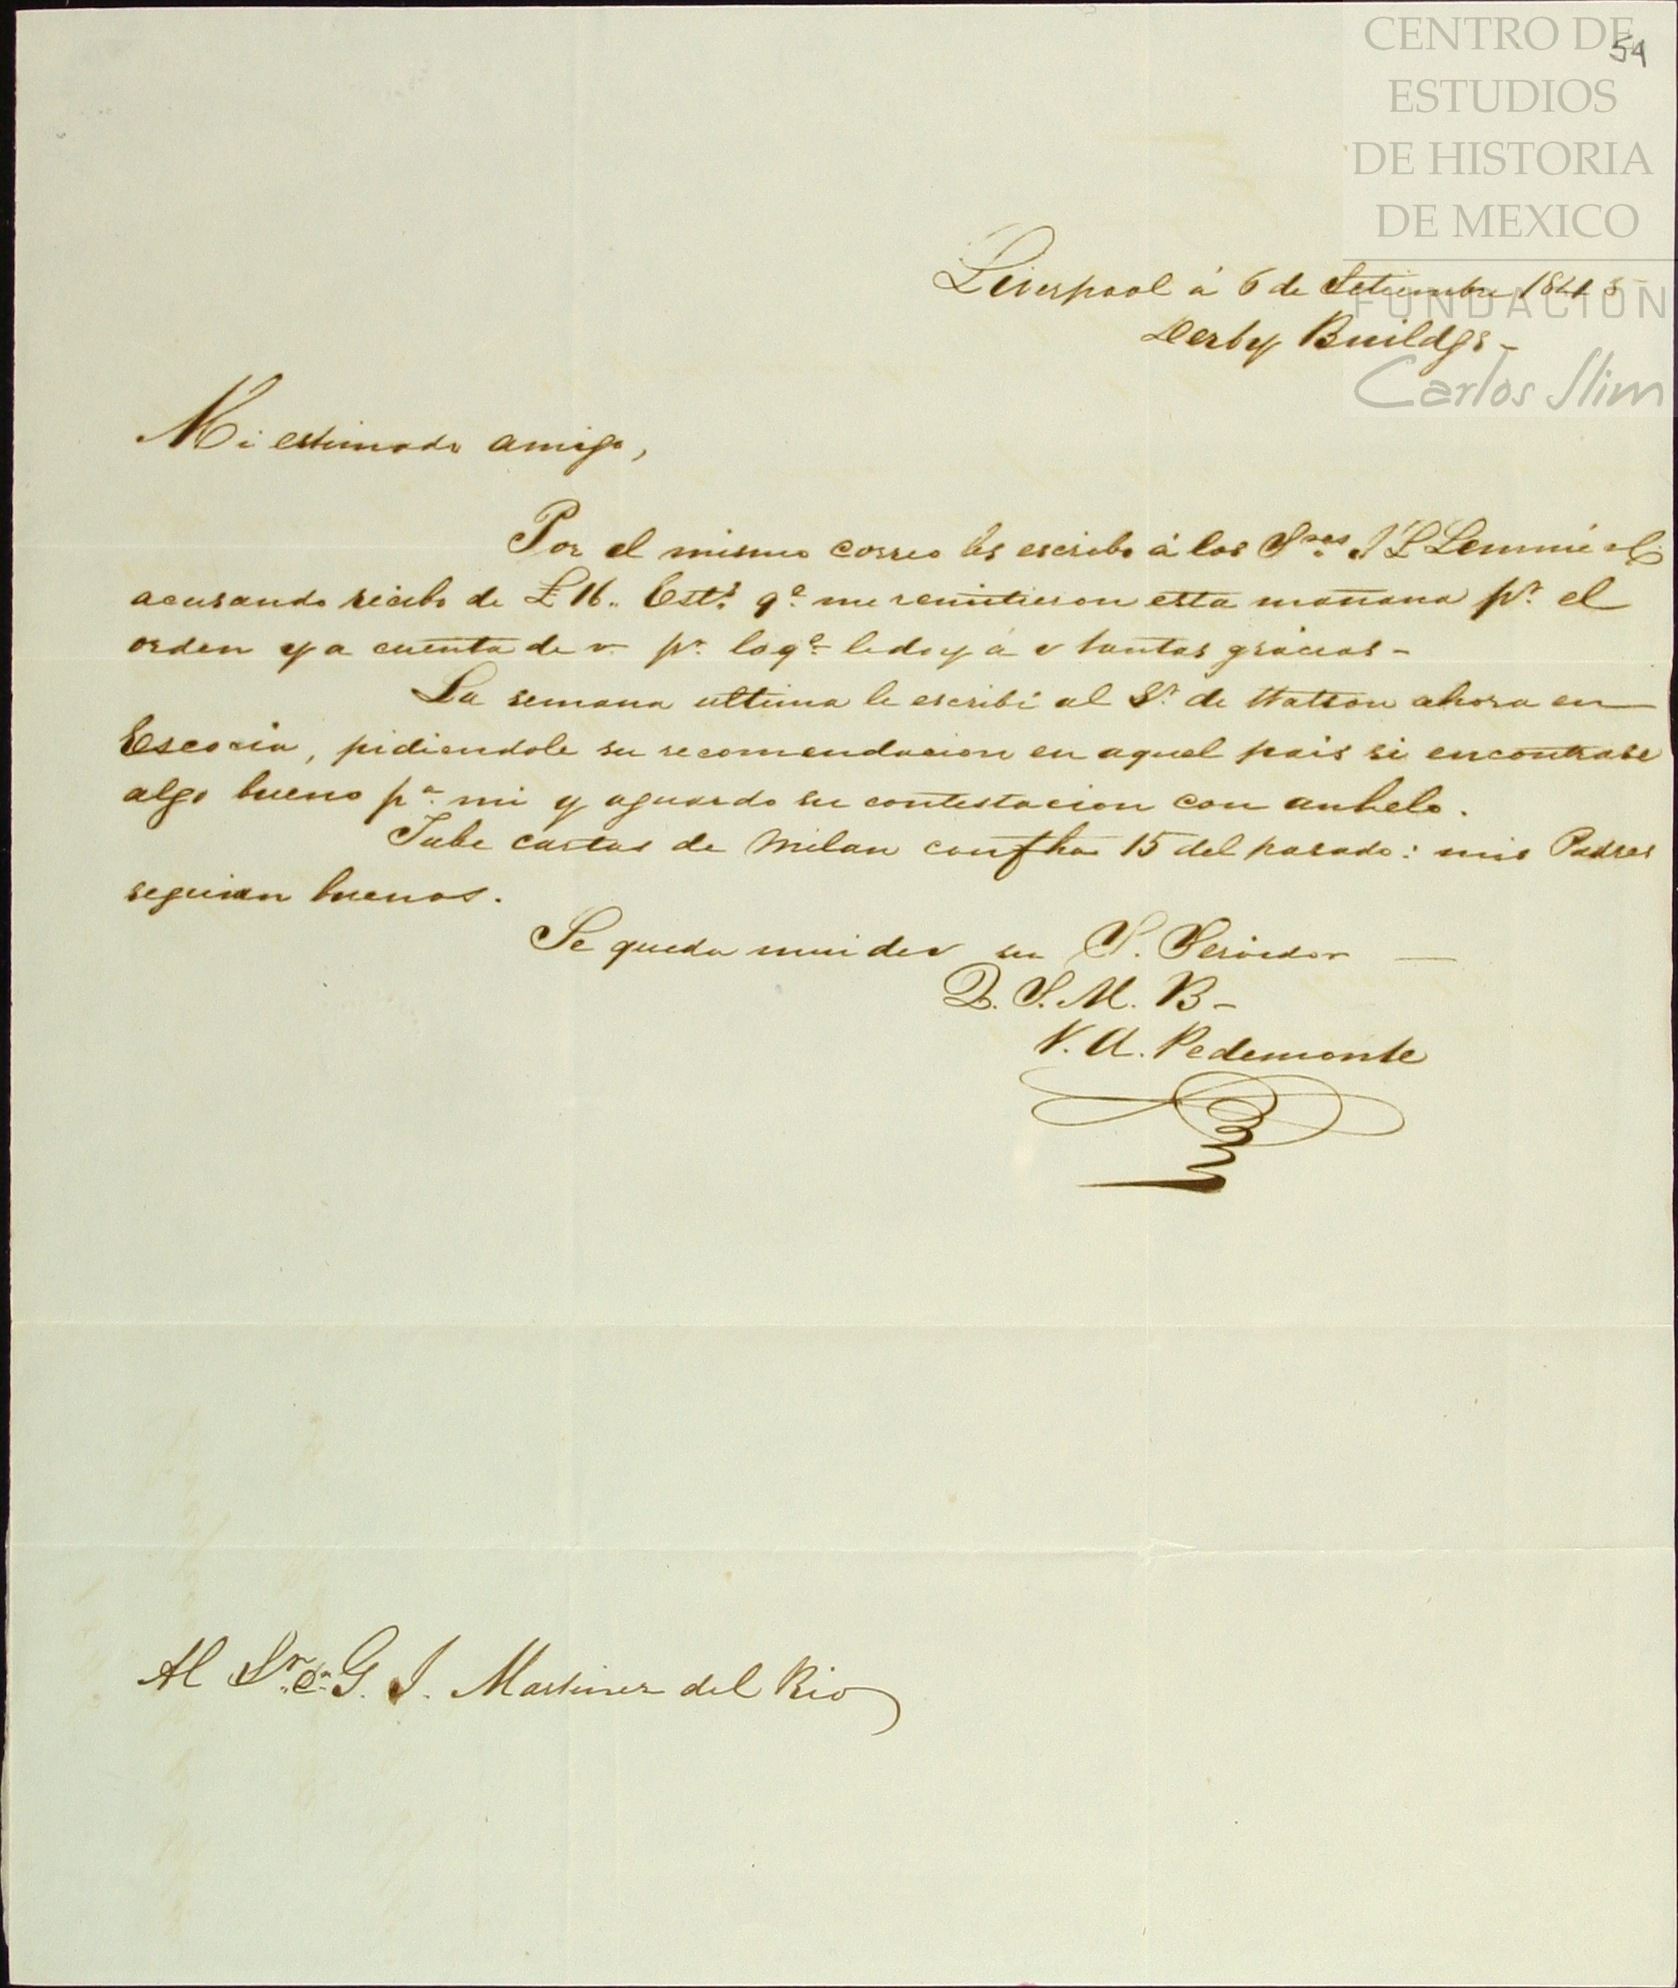 CENTRO DE
ESTUDIOS
DE HISTORIA
DE MEXICO
FUNDACION
Carlos Slim
54
Liverpool á 6 de Setiembre 1845
Derby Buildgs -
Mi estimado amigo,
Por el mismo correo les escribo á los Sres. J L Lemmé
acusando recibo de £16,, Ests. qe. me remitieron esta mañana pr. el
orden y a cuenta de v. pr. lo qe. le doy á v tantas gràcias -
La semana ultima le escribí al Sr. de Watson ahora en
Escocia, pidiendole su recomendacion en aquel pais si encontrase
algo bueno pa. mi y aguardo su contestacion con anhelo.
Tube cartas de Milan con fha 15 del pasado: mis Padres
seguian buenos.
Se queda mui de v su S. Servidor —
Q. S. M. B -
V. A. Pedemonte
Al Sr. Dn. G. J. Martinez del Rio